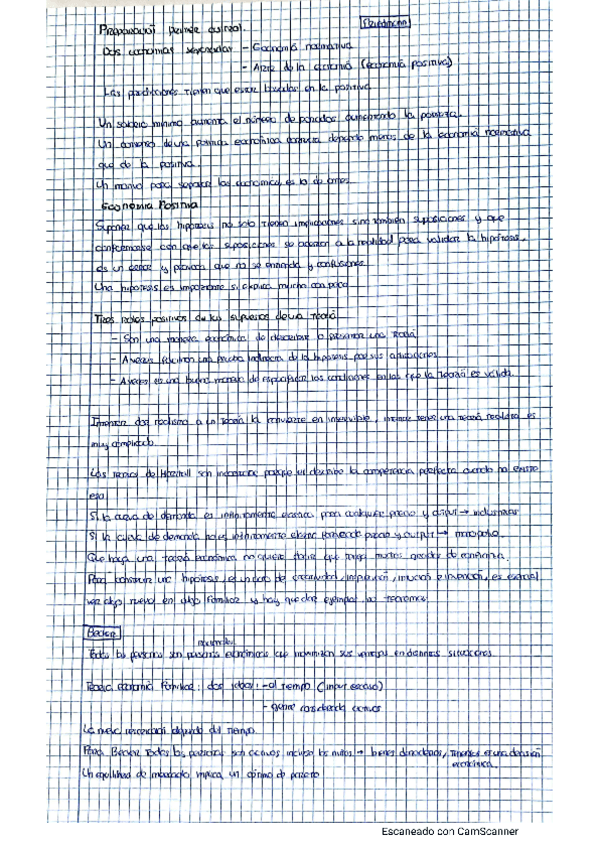 Friedman
Dos economías separadas - Economía normativa
- de la economía (economía positiva)
Las predicciones tienen que estar basadas en la positiva
Un salario mínimo aumenta el número de parados aumentando la pobreza.
Un de una política económica correcta depende menos de la economía normativa
que de la positiva.
Un manual para separar las economías es la de
Economía Positiva
Suponer que las hipótesis no solo tienen implicaciones sino también suposiciones y que
con que las suposiciones se a la realidad para validar la hipótesis.
es un error y provoca que no se entienda y confusiones
Una hipótesis es importante si explica mucho con poco
Tres roles positivos de los supuestos de una Teoría
- Son una manera económica de describir o presentar una Teoría
- A veces facilitan una prueba indirecta de la hipótesis por sus
- A veces es una buena manera de especificar las condiciones en las que la Teoría es válida.
realismo a la Teoría la convierte en inservible, tener una teoría realista es
muy complicado.
Las Teorías de son porque la competencia perfecta cuando no existe
eso
Si la curva de demanda es infinitamente elástica para cualquier precio y output →
Si la curva de demanda no es infinitamente elástica precio y output → monopolio.
Que haya una Teoría económica no quiere decir que tenga mucho grado de confianza.
Para construir una hipótesis, es un acto de creatividad, inspiración, intuición e invención, es esencial
ver algo nuevo en algo familiar y hay que dar ejemplos, no teoremas
Becker
Todas las personas son que maximizan sus ventajas en distintas situaciones
Teoría economía familiar: dos ideas: - el tiempo (input escaso)
-
La nueva del tiempo.
Para Becker todos los son activos incluso los niños → bienes domésticos, tenerlos es una decisión
económica.
Un equilibrio de mercado implica un óptimo de pareto
Escaneado con CamScanner